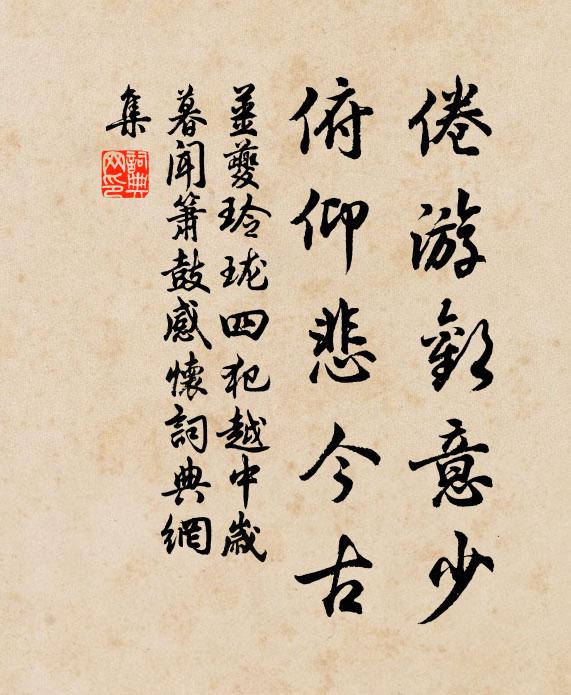 倦游歡意少
俯仰悲今古
姜夔玲瓏四犯越中歲
暮聞簫鼓感懷詞典網
集
詞典
网印